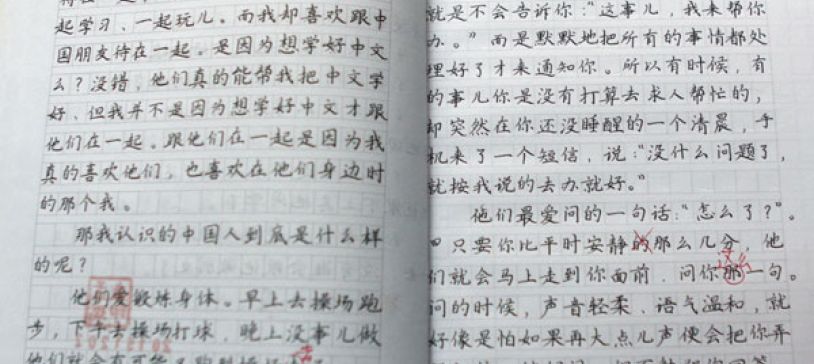 起学习、一起玩儿。而我却喜欢跟中
国朋友待在一起。是因为想学好中文
么？没错，他们真的能帮我把中文学
好，但我并不是因为想学好中文才跟
他们在一起。跟他们在一起是因为我
真的喜欢他们，也喜欢在他们身边时
的那个我。
那我认识的中国人到底是什么样
的呢？
他们爱锻炼身体。早上去操场跑
步，下午去操场打球，晚上没事儿做
他们就会有可能
就是不会告诉你：“这事儿，我来帮你
办。”而是默默地把所有的事情都处
理好了才来通知你。所以有时候，有
的事儿你是没有打算去求人帮忙的，
却突然在你还没睡醒的一个清晨，手
机来了一个短信，说：“没什么问题了，
就按我说的去办就好。”
他们最爱问的一句话：“怎么了？”。
只要你比平时安静的那么几分，他
们就会马上走到你面前，问你那一句。
问的时候，声音轻柔、语气温和，就
好像是怕如果再大点儿声便会把你弄